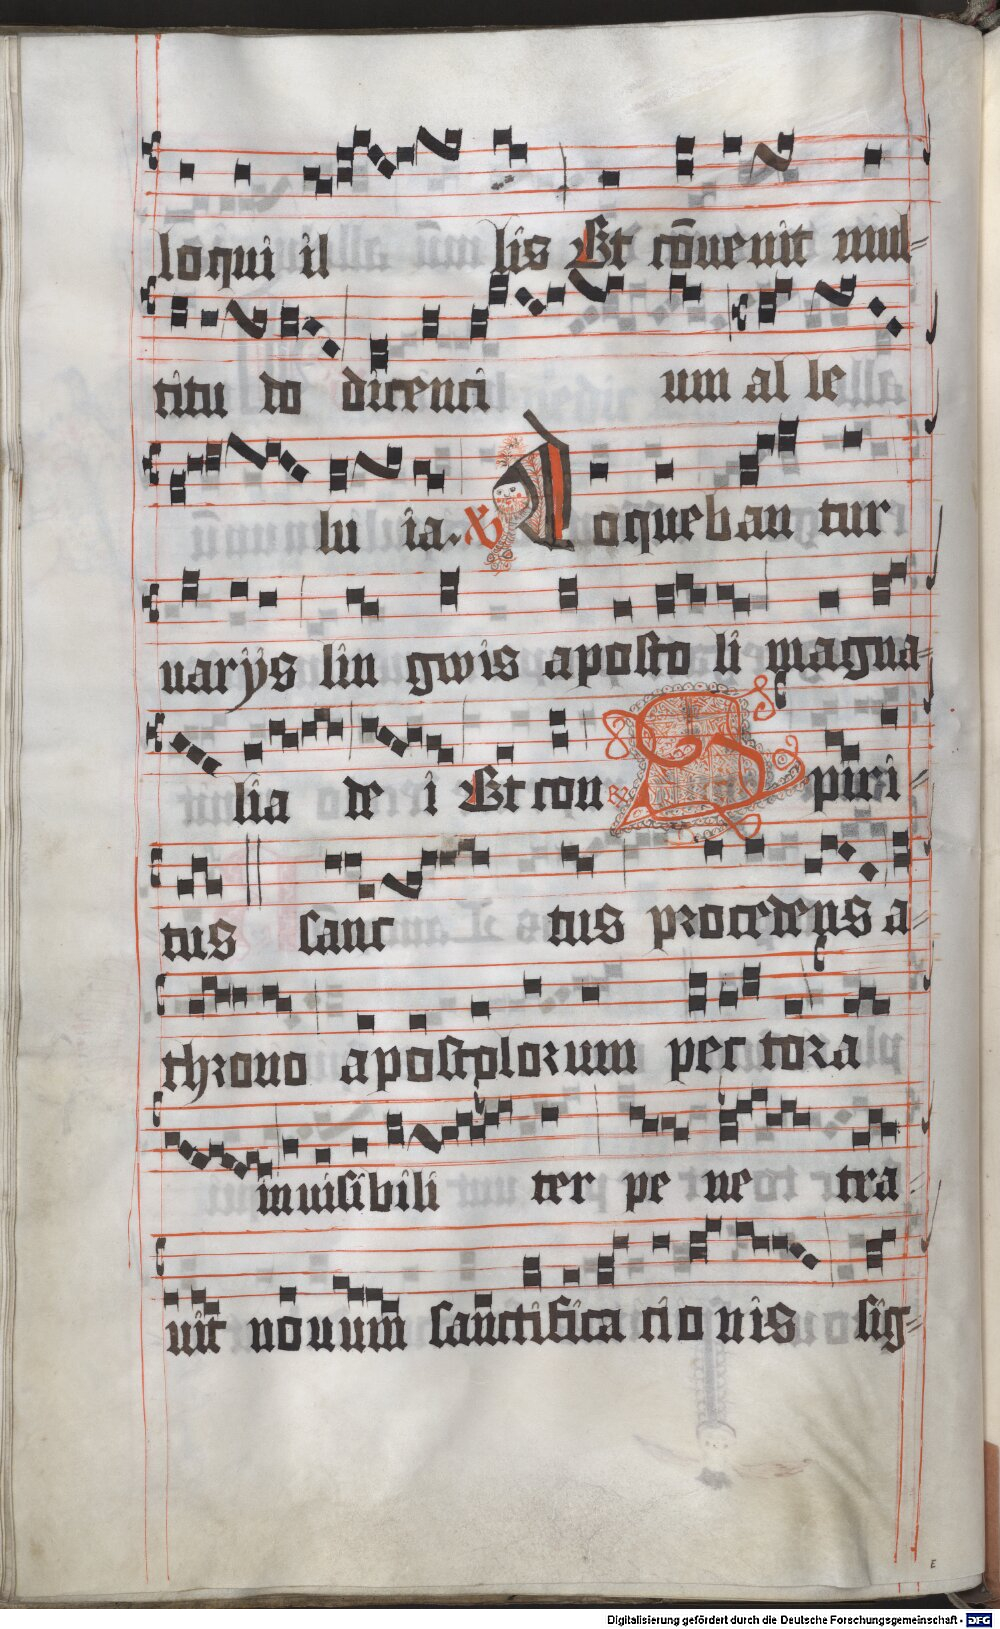 loqui il lis Et cōuenit mul=
titu do dicenci um al le
lu ia. V Loqueban tur
uarijs lin gwis aposto li magna=
lia de i Et con R Spiri=
tus sanc tus procedens a=
throno apostolorum pec tora
inuisibili ter pe ne tra=
uit nouum sanctifica cionis sig=
E
Digitalisierung gefördert durch die Deutsche Forschungsgemeinschaft - DFG